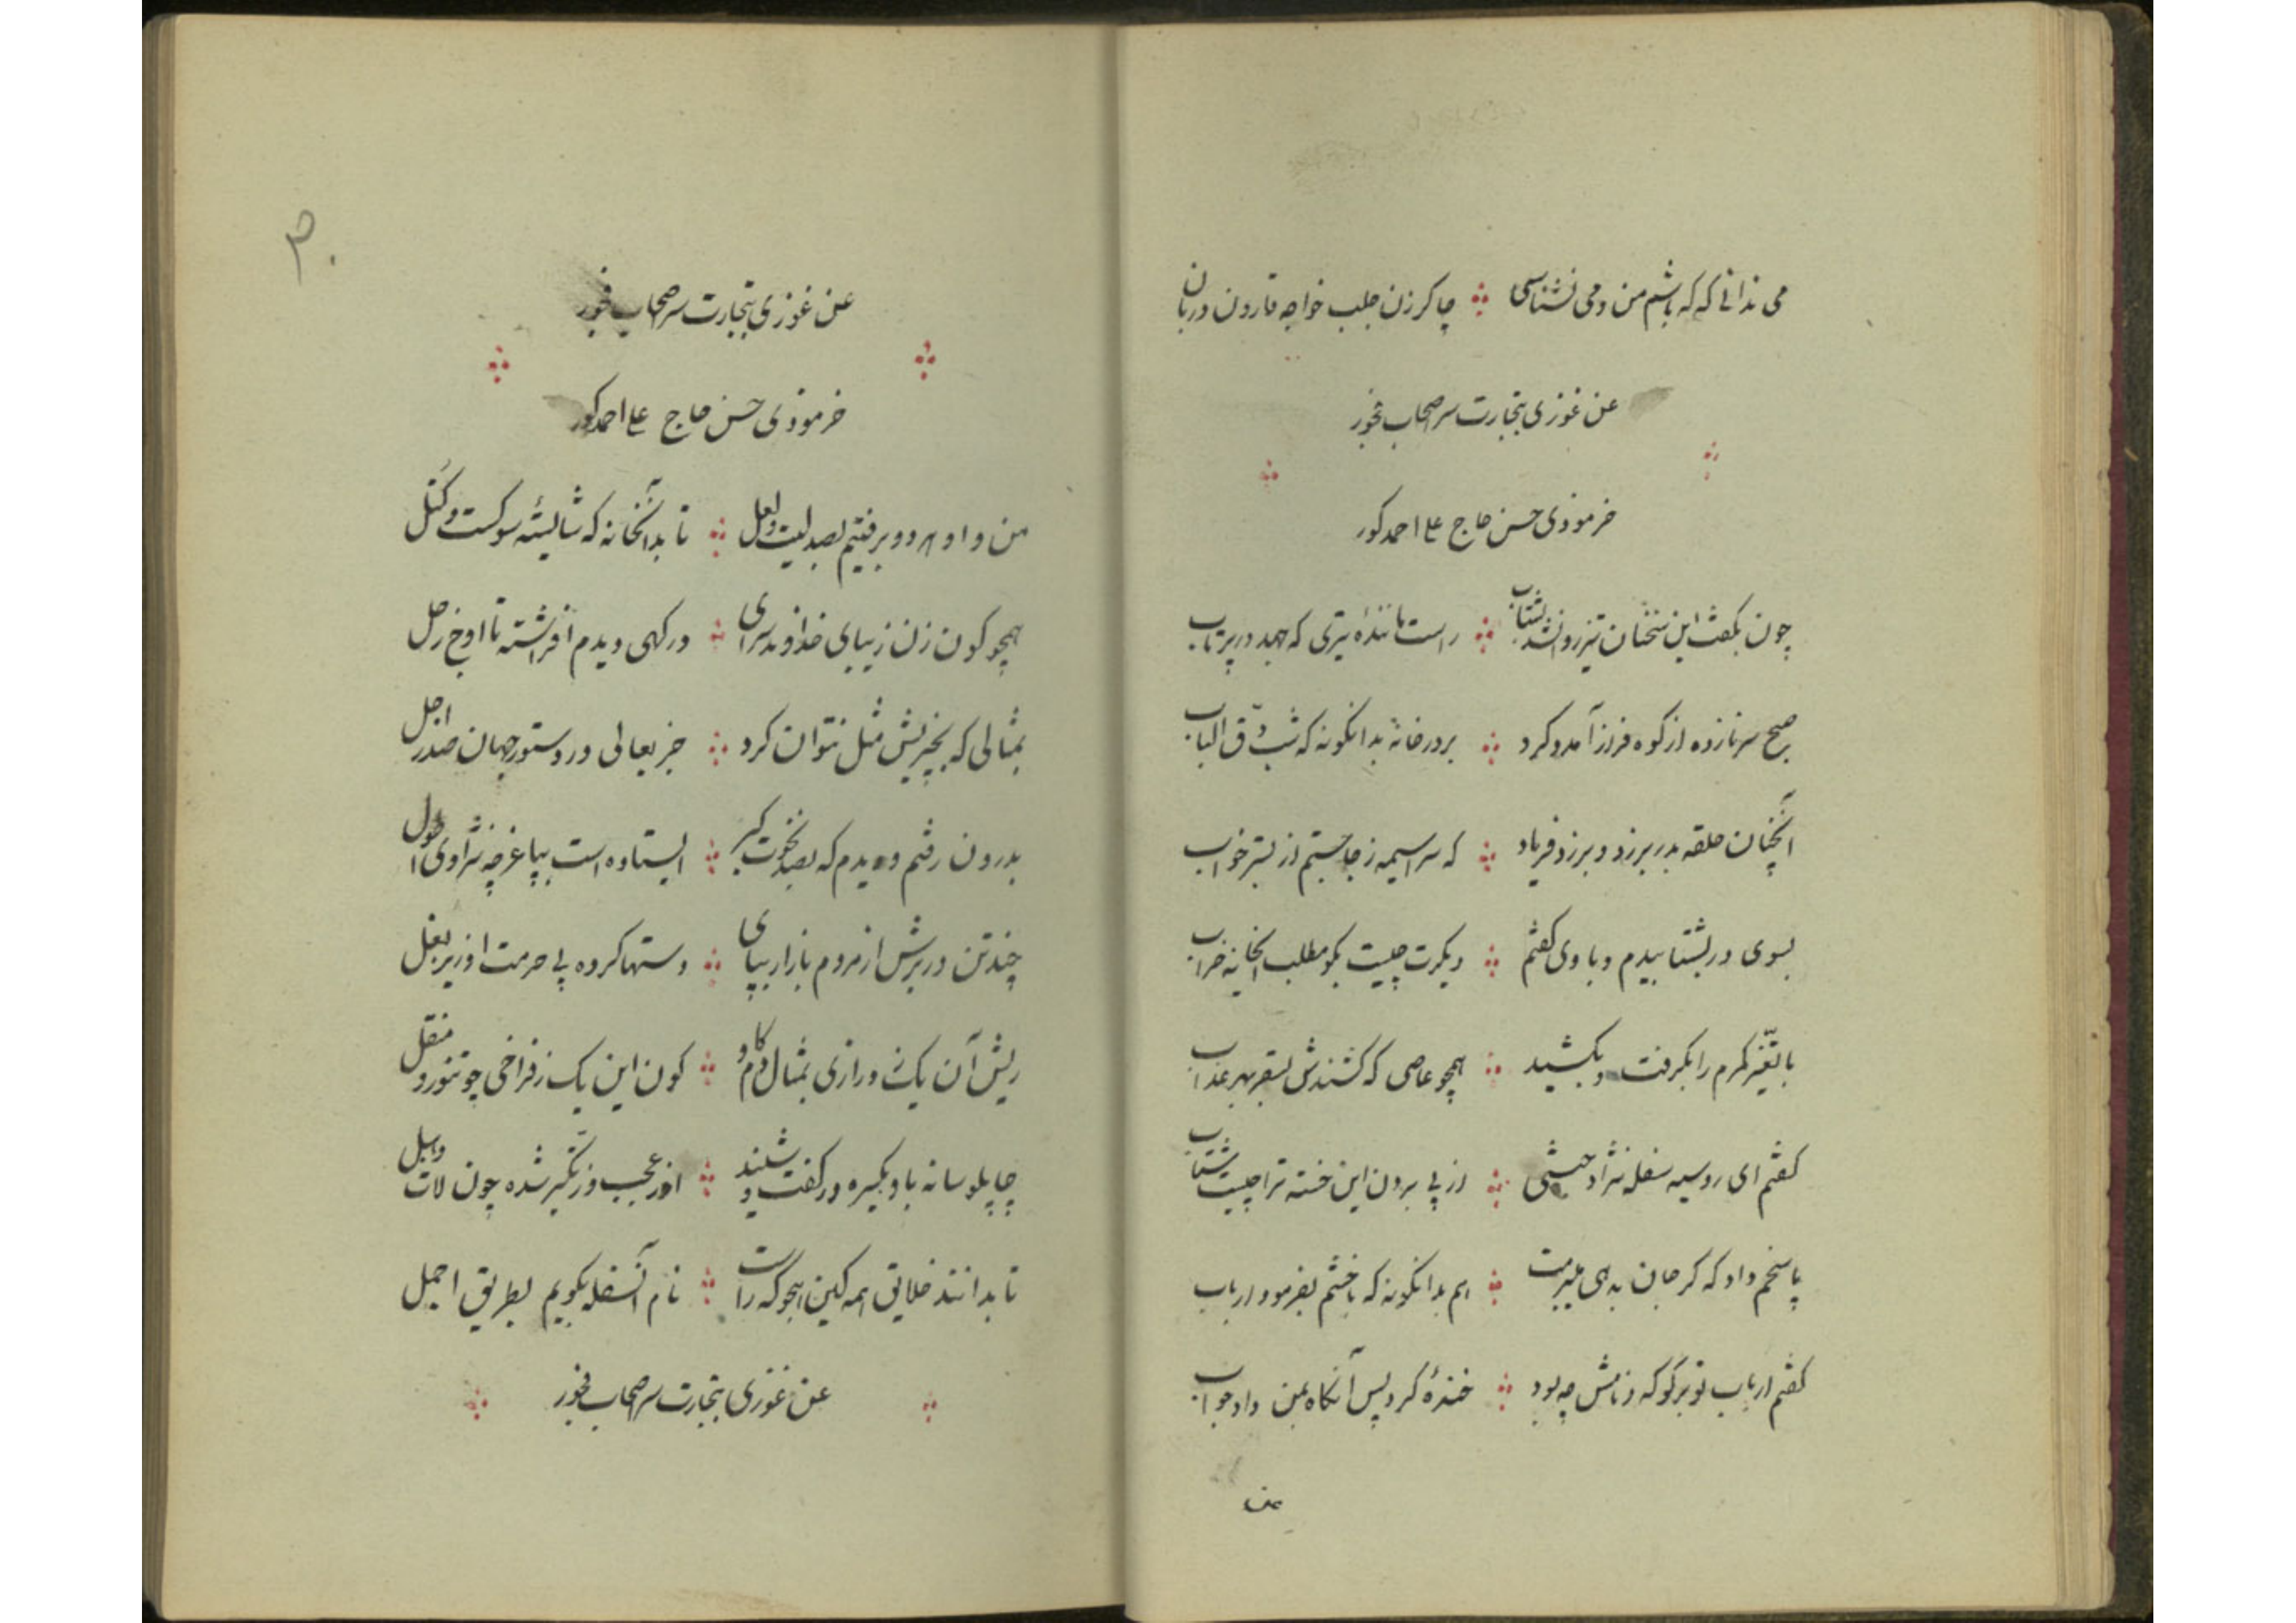 می ندانی که که باشم من و می نشناسی چاکر زن جلب خواجه قارون دربان
عن غوزی بتجارت سر صحاب فجور
خرموذی حسن حاج علی احمد کور
چون بگفت این سخنان تیز روان شد بشتاب راست مانندهٔ تیری که جهد در پرتاب
صبح سر نازده از کوه فراز آمد و کرد بر در خانه بدانگونه که شب دق الباب
آنچنان حلقه بدر بر زد و بر زد فریاد که سراسیمه ز جا جستم از بستر خواب
بسوی در بشتابیدم و با وی گفتم دیگرت چیست بگو مطلب ایخانه خراب
با تغیر کمرم را بگرفت و بکشید همچو عاصی که کشندش بسقر بهر عذاب
گفتم ای روسیه سفله نژاد حبشی از پی بردن این خسته ترا چیست شتاب
پاسخم داد که گر جان بدهی میبرمت هم بدانگونه که با خشم بفرمود ارباب
گفتم ارباب تو برگو که و نامش چه بود خندهٔ کرد پس آنگاه بمن داد جواب
عن
۳۰
عن غوزی بتجارت سر صحاب فجور
خرموذی حسن حاج علی احمد کور
من و او هر دو برفتیم بصد لیت و لعل تا بدانخانه که شایستهٔ سوکست و کتل
همچو کون زن زیبای خداوند سرای درگهی دیدم افراشته تا اوج زحل
بمثالی که بخیریش مثل نتوان کرد جز بعالی در دستور جهان صدر اجل
بدرون رفتم و دیدم که بصد نخوت و کبر ایستاده است بپا غرچه نژادی احول
چند تن در برش از مردم بازار بپای دستها کرده پی حرمت او زیر بغل
ریش آن یک ز درازی بمثال دم گاو کون این یک ز فراخی چو تنور و منقل
چاپلوسانه باو یکسره در گفت و شنید او ز عجب و ز تکبر شده چون لات و هبل
تا بدانند خلایق همه کاین هجو که راست نام آنسفله بگویم بطریق اجمل
عن غوزی بتجارت سر صحاب فجور